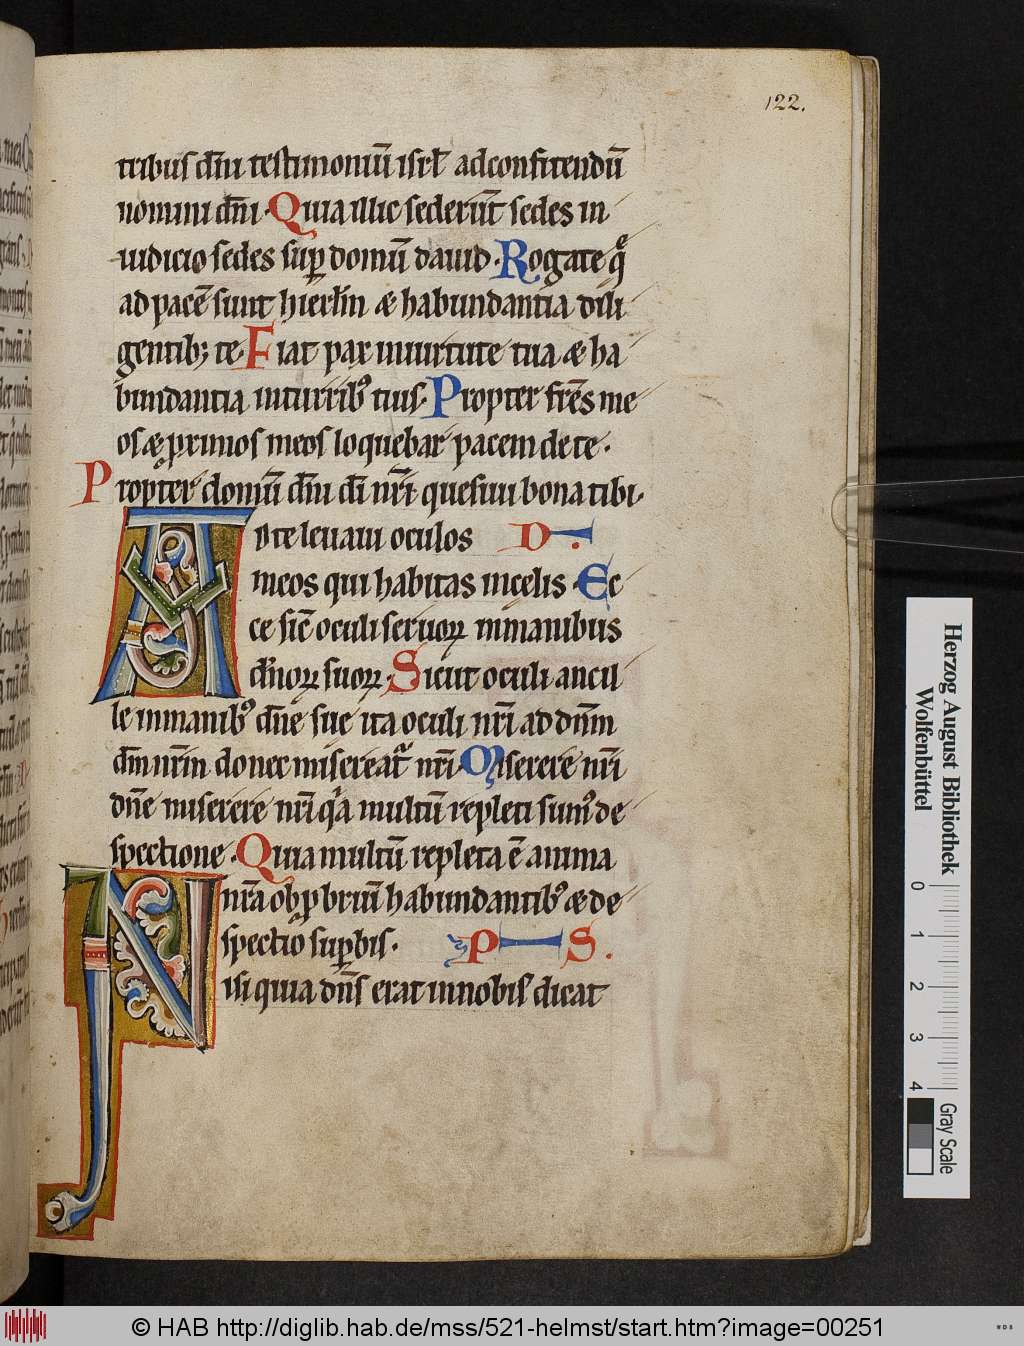 122.
tribus dn̄i testimoniū isrl̄ adconfitendū
nomini dn̄i. Quia illic sederūt sedes in
iudicio sedes sup̄ domū dauid. Rogate q̄
ad pacē sunt hierlm̄ æ habundantia dili
gentib; te. Fiat pax inuirtute tua æ ha
bundantia inturrib᾽ tuis. Propter fr̄es me
os æ proximos meos loquebar pacem de te.
Propter domū dn̄i di̅ nr̄i quesiui bona tibi.
AD te leuaui oculos D
meos qui habitas incelis. Ec
ce sic̄ oculi seruoꝝ inmanibus
dn̄oꝝ suoꝝ. Sicut oculi ancil
le inmanib᾽ dn̄e sue ita oculi nr̄i ad dn̄m
dm̄ nr̄m donec misereat᾽ nr̄i. Miserere nr̄i
dn̄e miserere nr̄i qͥa multū repleti sum᾽ de
spectione. Quia multū repleta ē anima
nr̄a obp̱briū habundantib᾽ æ de
spectio sup̱bis. PS.
Nisi quia dn̄s erat innobis dicat
Herzog August Bibliothek
Wolfenbüttel
0 1 2 3 4
Gray Scale
© HAB http://diglib.hab.de/mss/521-helmst/start.htm?image=00251